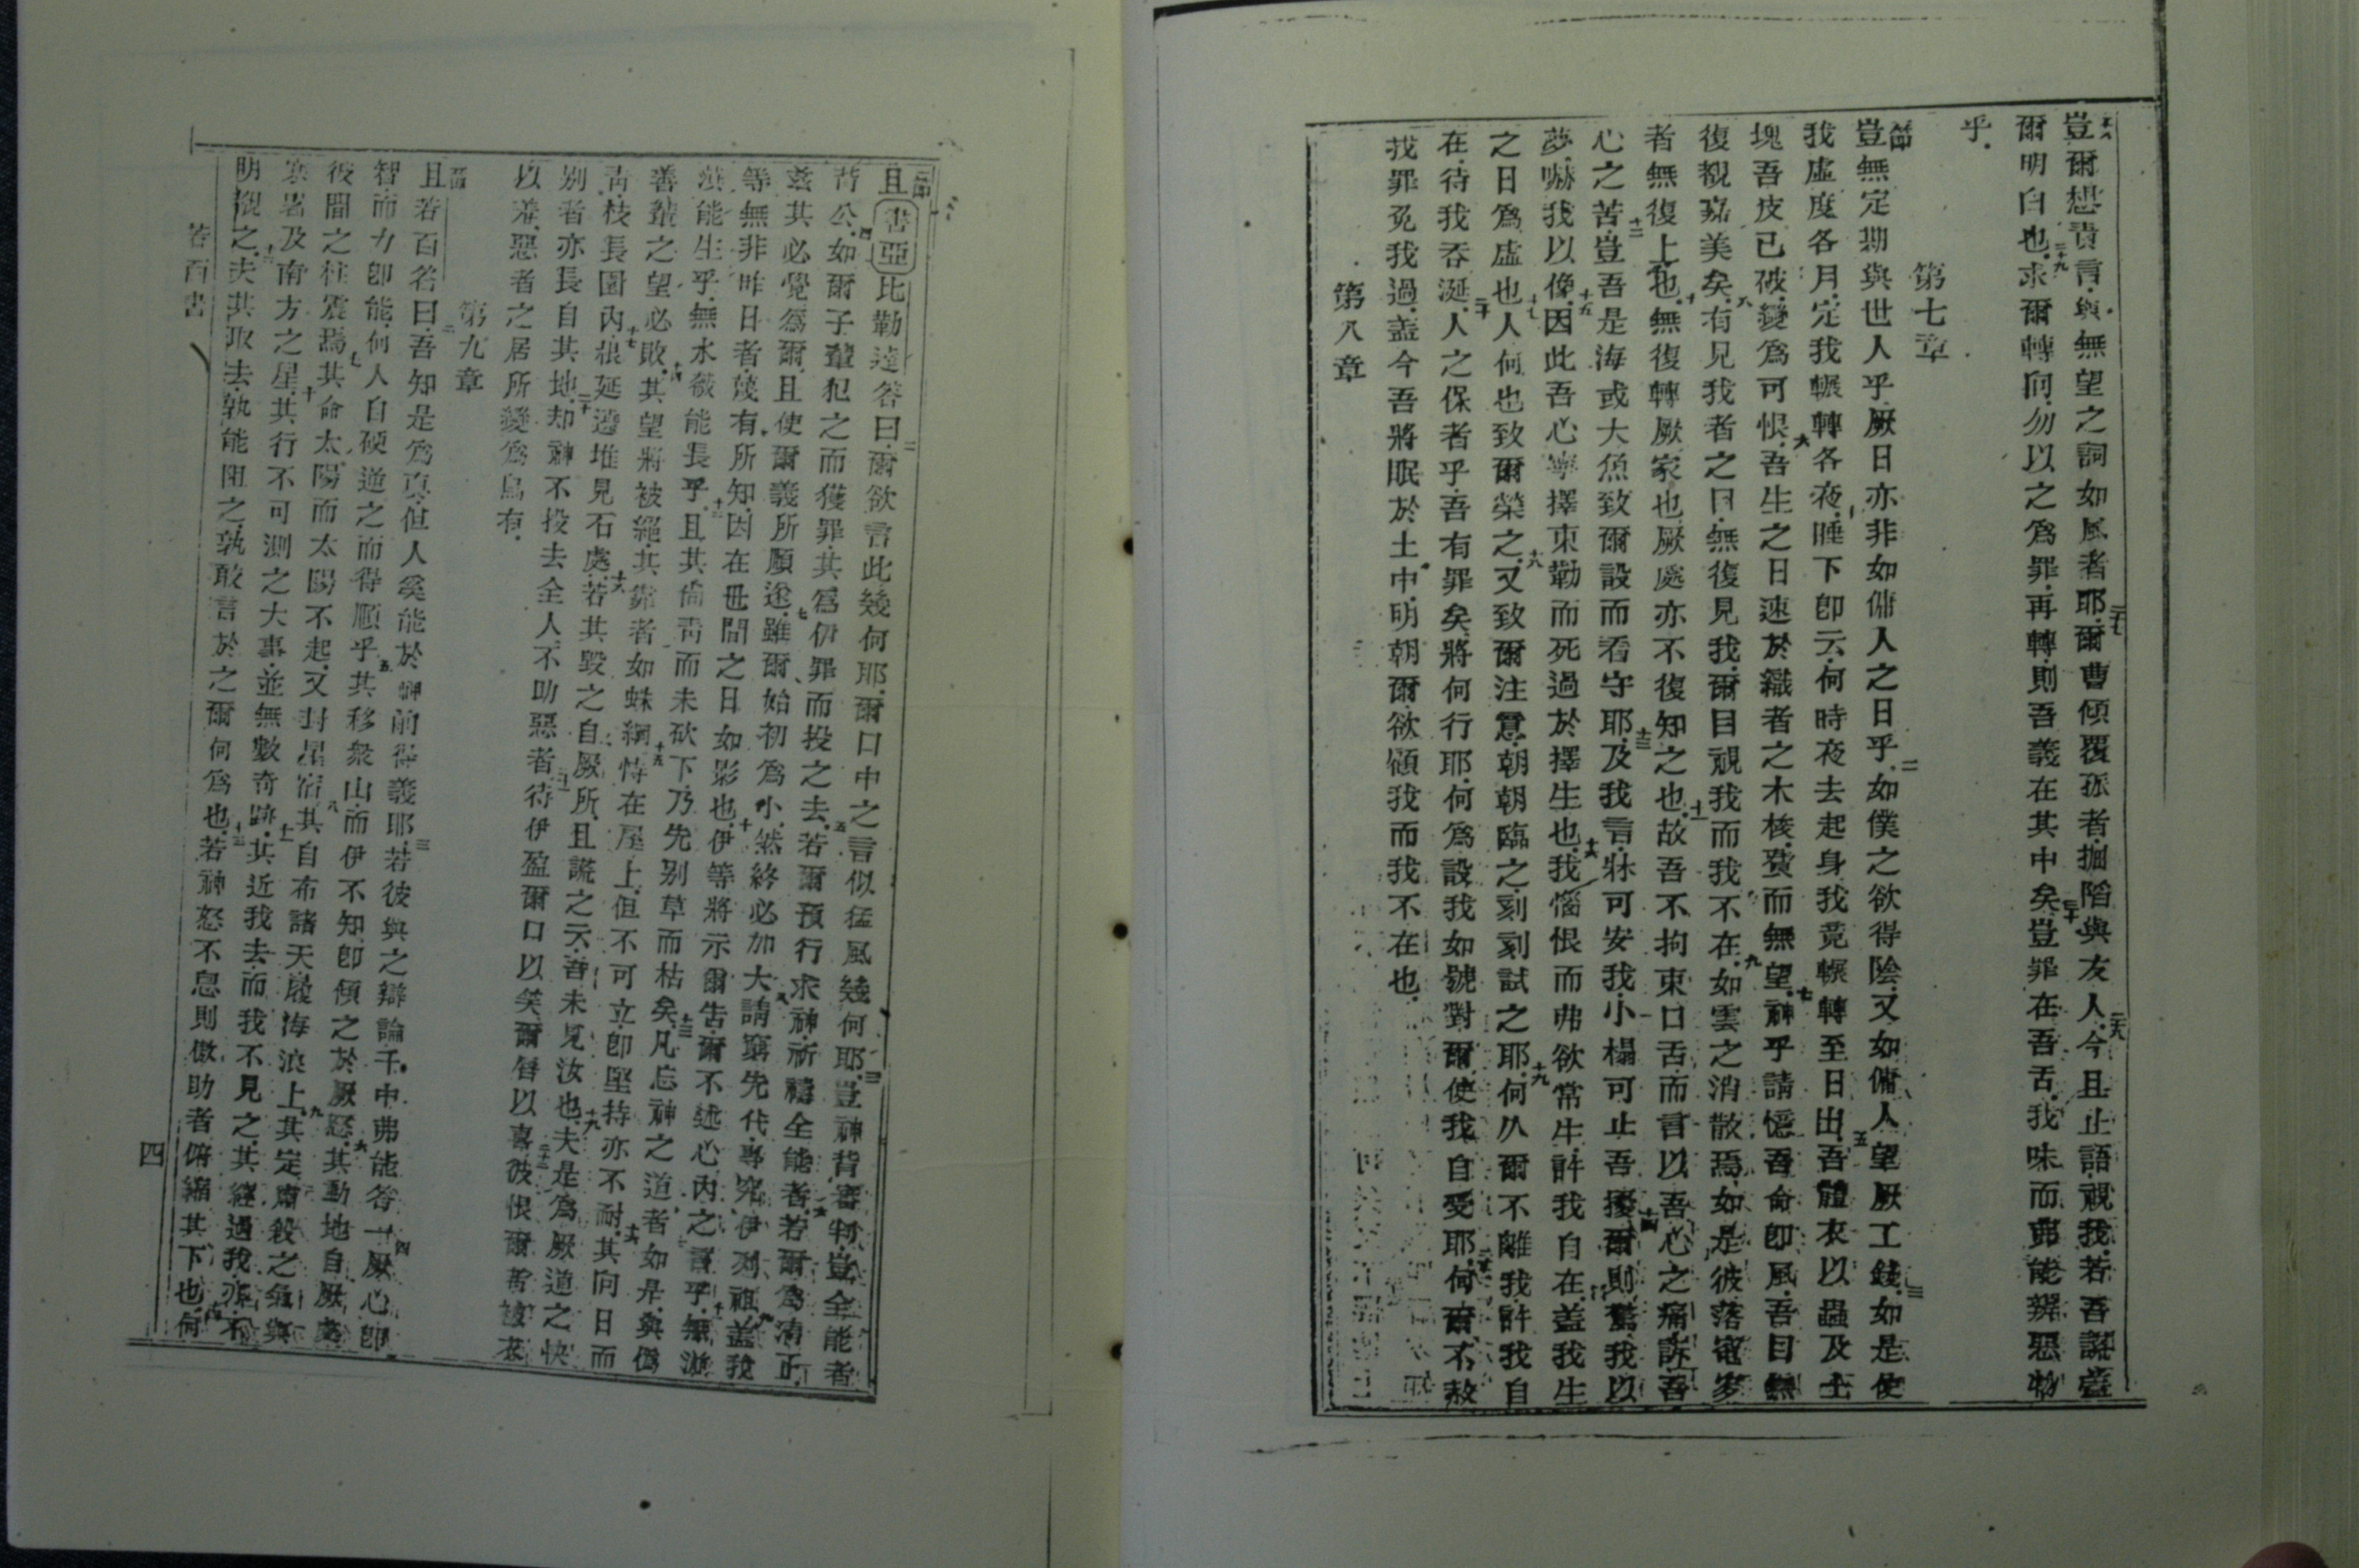 豈爾想責言與無望之詞如風者耶爾曹傾覆孤者掘陷與友人今且止語視我若吾謊蓋
爾明白也求爾轉向勿以之爲罪再轉則吾義在其中矣豈罪在吾舌我味而弗能辨惡物
乎
第七章
豈無定期與世人乎厥日亦非如傭人之日乎如僕之欲得陰又如傭人望厥工錢如是使
我虛度各月定我輾轉各夜睡下卽云何時夜去起身我竟輾轉至日出吾體衣以蟲及土
塊吾皮已破變爲可恨吾生之日速於織者之木梭費而無望神乎請憶吾命卽風吾目無
復觀嘉美矣有見我者之目無復見我爾目視我而我不在如雲之消散焉如是彼落
者無復上也無復轉厥家也厥處亦不復知之也故吾不拘束口舌而言以吾心之痛訴吾
心之苦豈吾是海或大魚致爾設而看守耶及我言牀可安我小榻可止吾擾爾則驚我以
夢嚇我以像因此吾心寧擇束勒而死過於擇生也我惱恨而弗欲常生許我自在蓋我生
之日爲虛也人何也致爾榮之又致爾注意朝朝臨之刻刻試之耶何久爾不離我許我自
在待我吞涎人之保者乎吾有罪矣將何行耶何爲設我如號對爾使我自受耶何爾不赦
我罪免我過蓋今吾將眠於土中明朝爾欲顧我而我不在也
第八章
且書亞比勒達答曰爾欲言此幾何耶爾口中之言似猛風幾何耶豈神背審判豈全能者
背公如爾子輩犯之而獲罪其爲伊罪而投之去若爾預行求神祈禱全能者若爾爲清正
茲其必覺爲爾且使爾義所願逵雖爾始初爲小然終必加大請窮先代專究伊列祖蓋我
等無非昨日者蔑有所知因在世間之日如影也伊等將示爾告爾不述心內之言乎無
能生乎無水能長乎且其尙靑而未砍下乃先别草而枯矣凡忘神之道者如是與僞
善輩之望必敗其望將被絕其靠者如蛛網恃在屋上但不可立卽堅持亦不耐其向日而
靑枝長園內根延邉堆見石處若其毀之自厥所且謊之云吾未見汝也夫是爲厥道之快
别者亦長自其地却神不投去全人不助惡者待伊盈爾口以笑爾唇以喜彼恨爾者被衣
以羞惡者之居所變爲烏有
第九章
且若百答曰吾知是爲真但人奚能於神前得義耶若彼與之辯論千中弗能答一厥心卽
智而力卽能何人自硬逆之而得順乎其移衆山而伊不知卽傾之於厥怒其動地自厥處
彼間之柱震焉其命太陽而太陽不起又封星宿其自布諸天履海浪上其定肅殺之氣與
寒暑及南方之星其行不可測之大事並無數奇跡其近我去而我不見之其經過我亦不
明覩之夫其取去孰能阻之孰敢言於之爾何爲也若神怒不息則傲助者俯縮其下也何
若百書
四